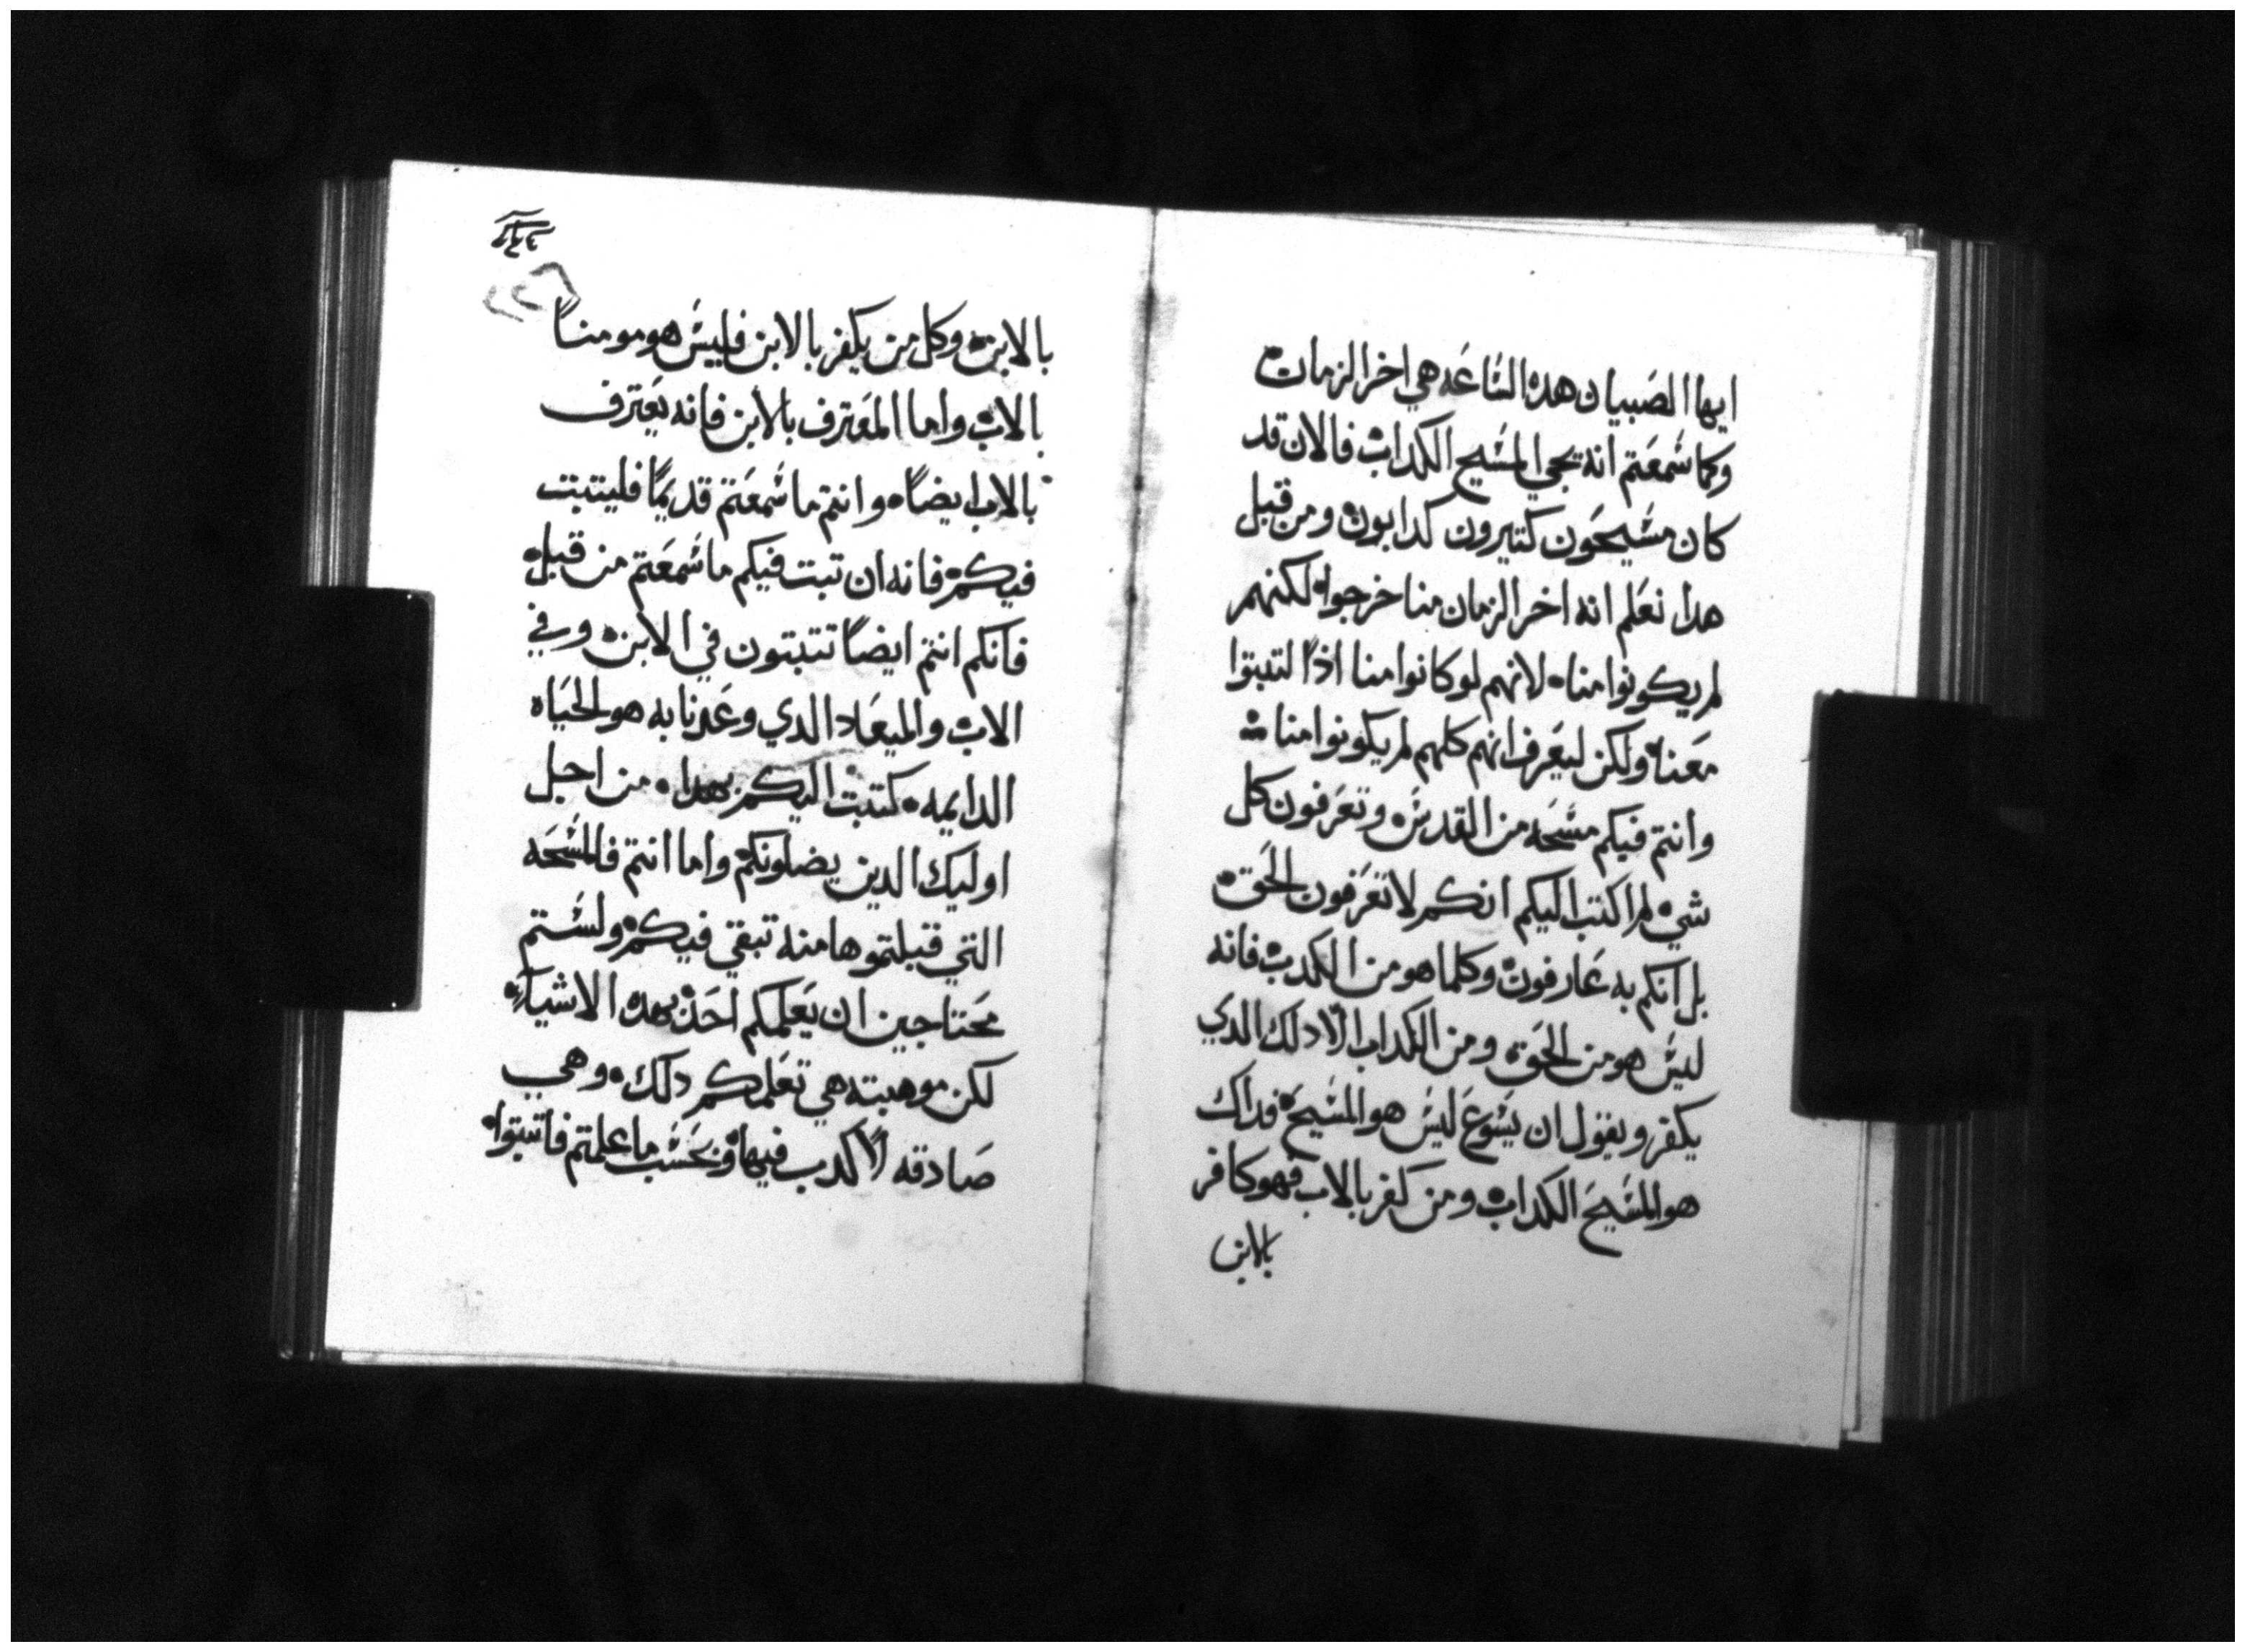 ايها الصبيان هده الساعه هي اخر الزمان
وكما سمعتم انه يجي المسيح الكداب فالان قد
كان مسيحون كتيرون كدابون ومن قبل
هدا نعلم انه اخر الزمان منا خرجوا لكنهم
لم يكونوا منا لانهم لو كانوا منا اذا لتبتوا
معنا ولكن ليعرف انهم كلهم لم يكونوا منا
وانتم فيكم مسحه من القدس وتعرفون كل
شي لم اكتب اليكم انكم لا تعرفون الحق
بل انكم به عارفون وكلما هو من الكدب فانه
ليس هو من الحق ومن الكداب الا دلك الدي
يكفر ويقول ان يسوع ليس هو المسيح فداك
هو المسيح الكداب ومن كفر بالاب فهو كافر
بالابن
بالابن وكل من يكفر بالابن فليس هو مومنا
بالاب واما المعترف بالابن فانه يعترف
بالاب ايضا وانتم ما سمعتم قديما فليتبت
فيكم فانه ان تبت فيكم ما سمعتم من قبل
فانكم انتم ايضا تتبتون في الابن وفي
الاب والميعاد الدي وعدنا به هو الحياه
الدايمه كتبت اليكم بهدا من اجل
اوليك الدين يضلونكم واما انتم فالمسحه
التي قبلتموها منه تبقي فيكم ولستم
محتاجين ان يعلمكم احد بهده الاشياء
لكن موهبته هي تعلمكم دلك وهي
صادقه لا كدب فيها وبحسب ما علمتم فاتبتوا